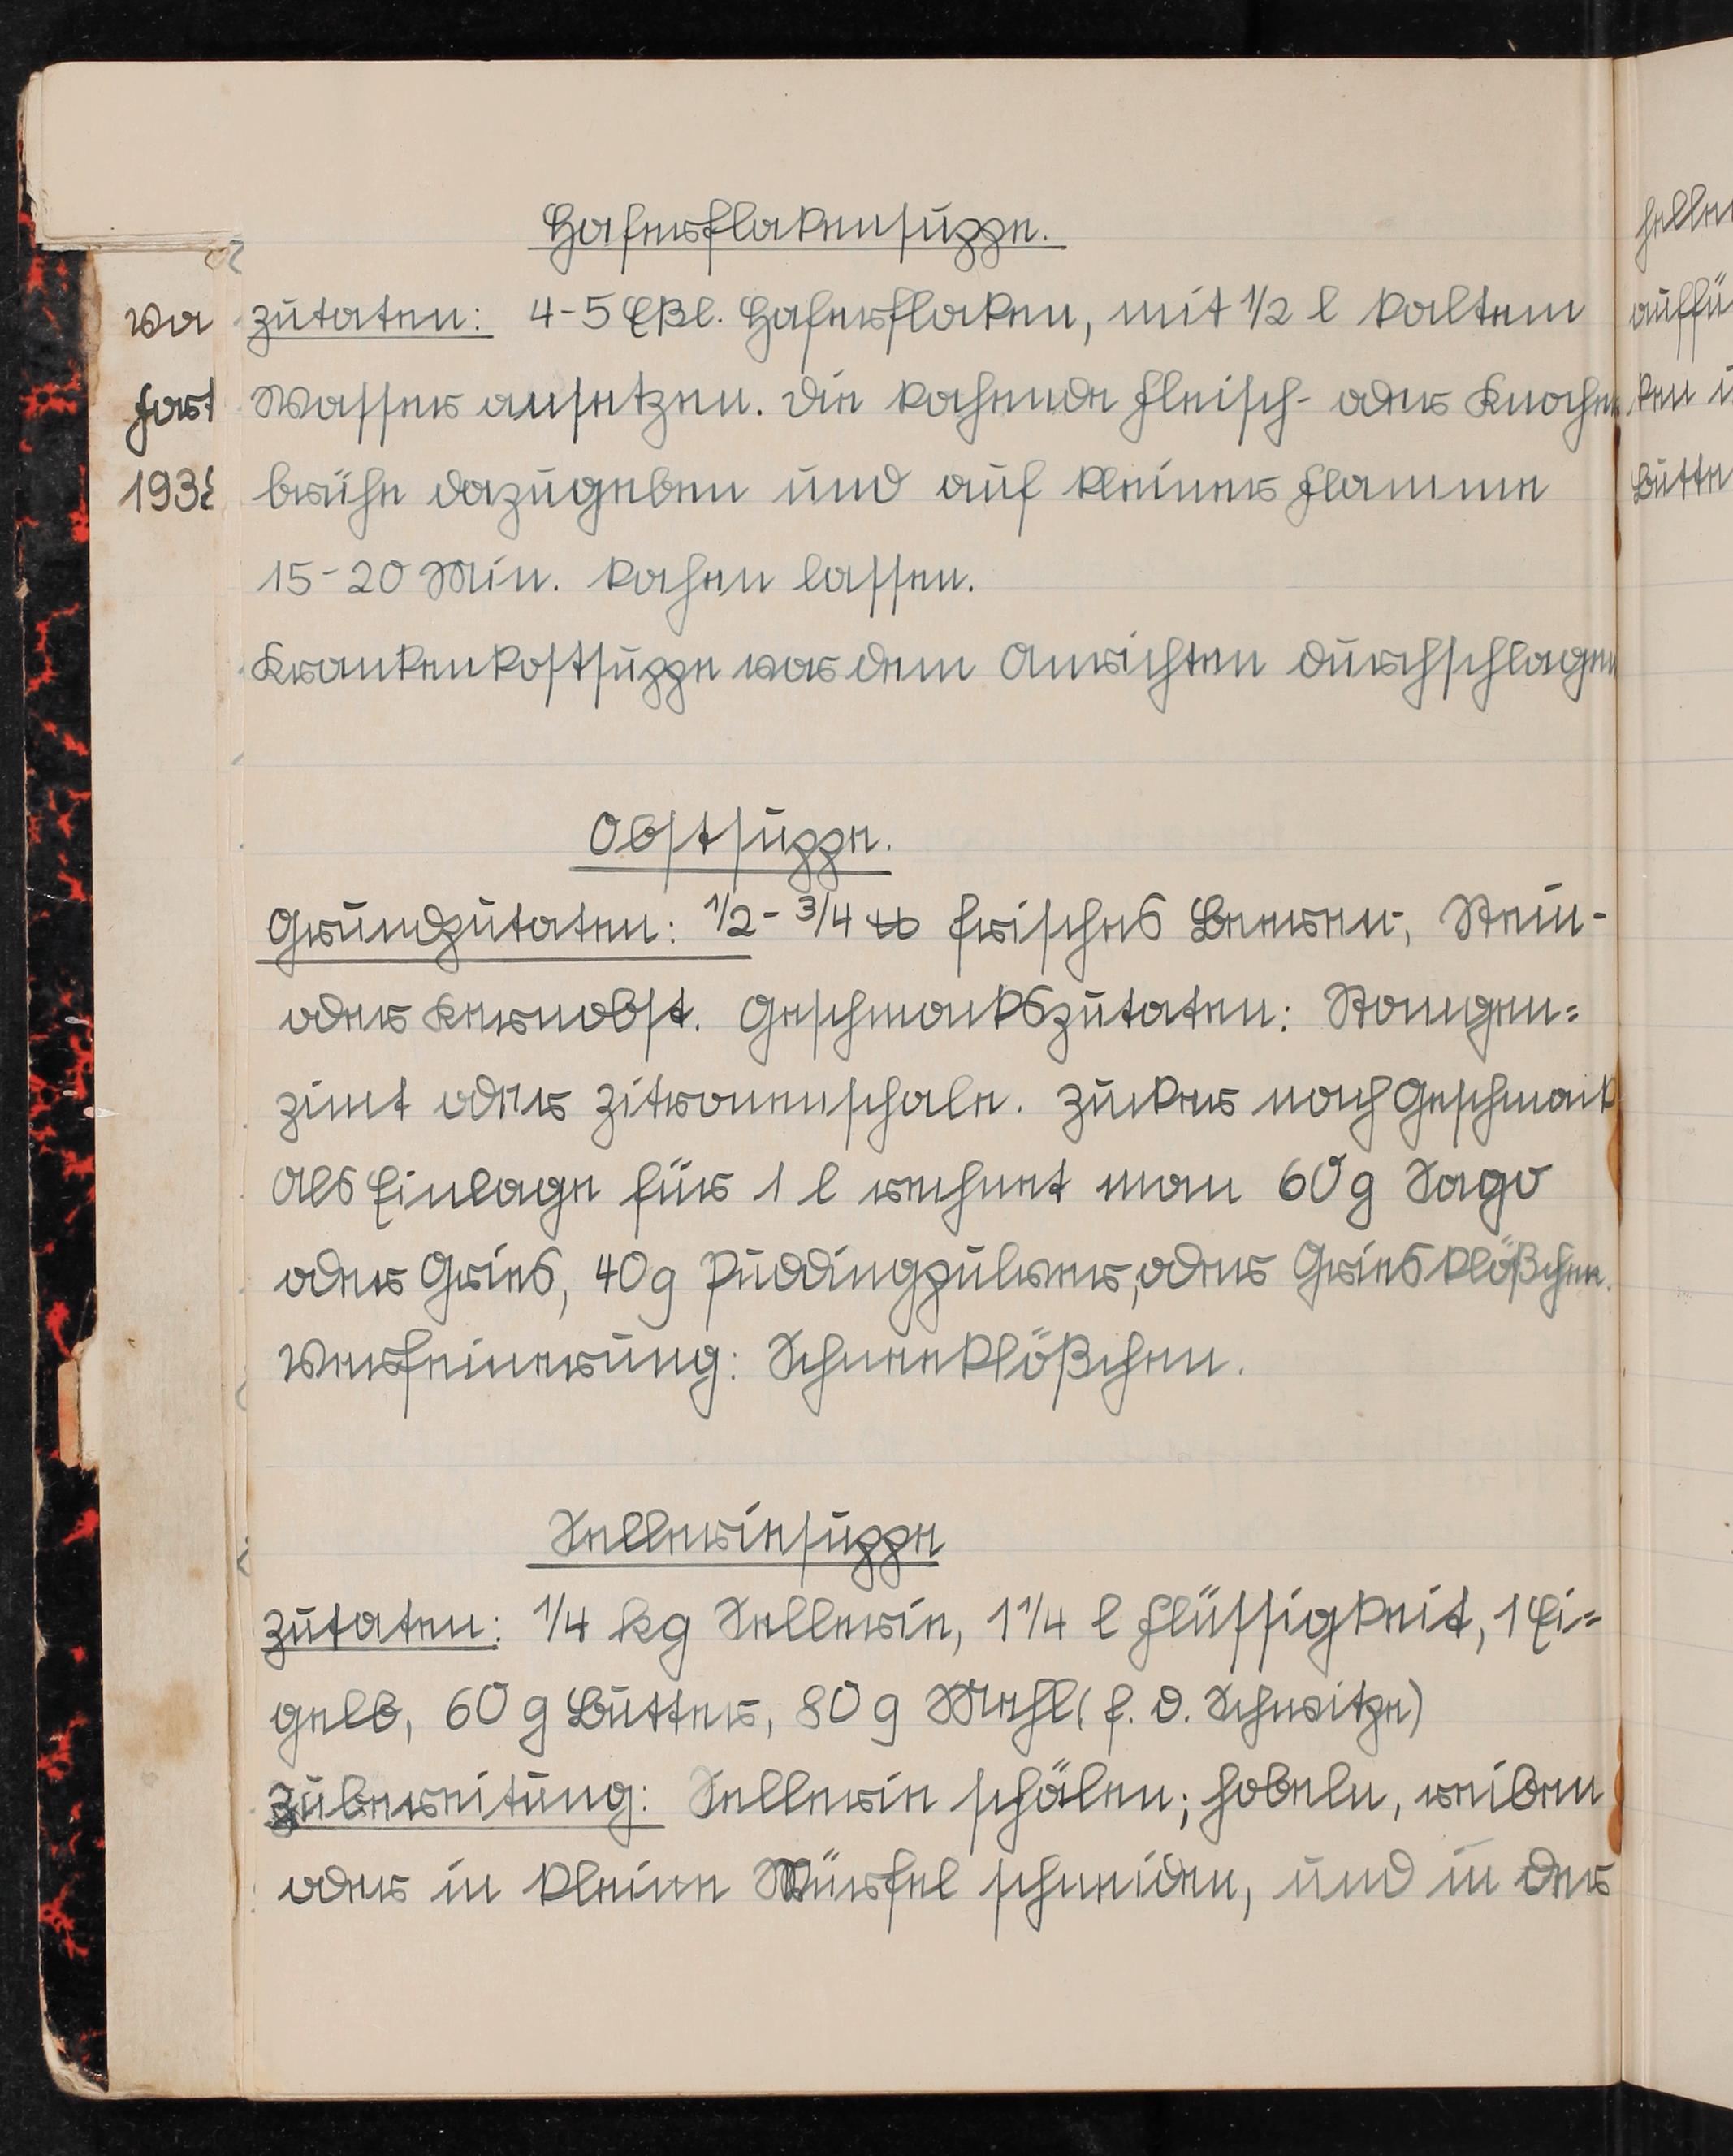 Haferflakensuppe.
Zutaten: 4-5 Eßl. Haferflaken, mit 1/2 l kaltem
Wasser ansetzen. Die kochende Fleisch- oder Knochen
brühe dazugeben und auf kleiner Flamme
15-20 Min. kochen lassen.
Krankenkostsuppe vor dem Anrichten durchschlagen
Obstsuppe.
Grundzutaten: 1/2 - 3/4 ℔ frisches Beeren-, Stein-
oder Kernobst. Geschmackszutaten: Stangen=
zimt oder Zitronenschale. Zucker nach Geschmack
Als Einlage für 1 l rechnet man 60 g Sago
oder Gries, 40 g Puddingpulver, oder Griesklößchen.
Verfeinerung: Schneeklößchen.
Selleriesuppe
Zutaten: 1/4 kg Sellerie, 1 1/4 l Flüssigkeit, 1 Ei=
gelb, 60 g Butter, 80 g Mehl (f. d. Schwitze)
Zubereitung: Sellerie schälen; hobeln, reiben
oder in kleine Würfel schneiden, und in der
wa
fort
193
heller
auffü
ken u
Butte